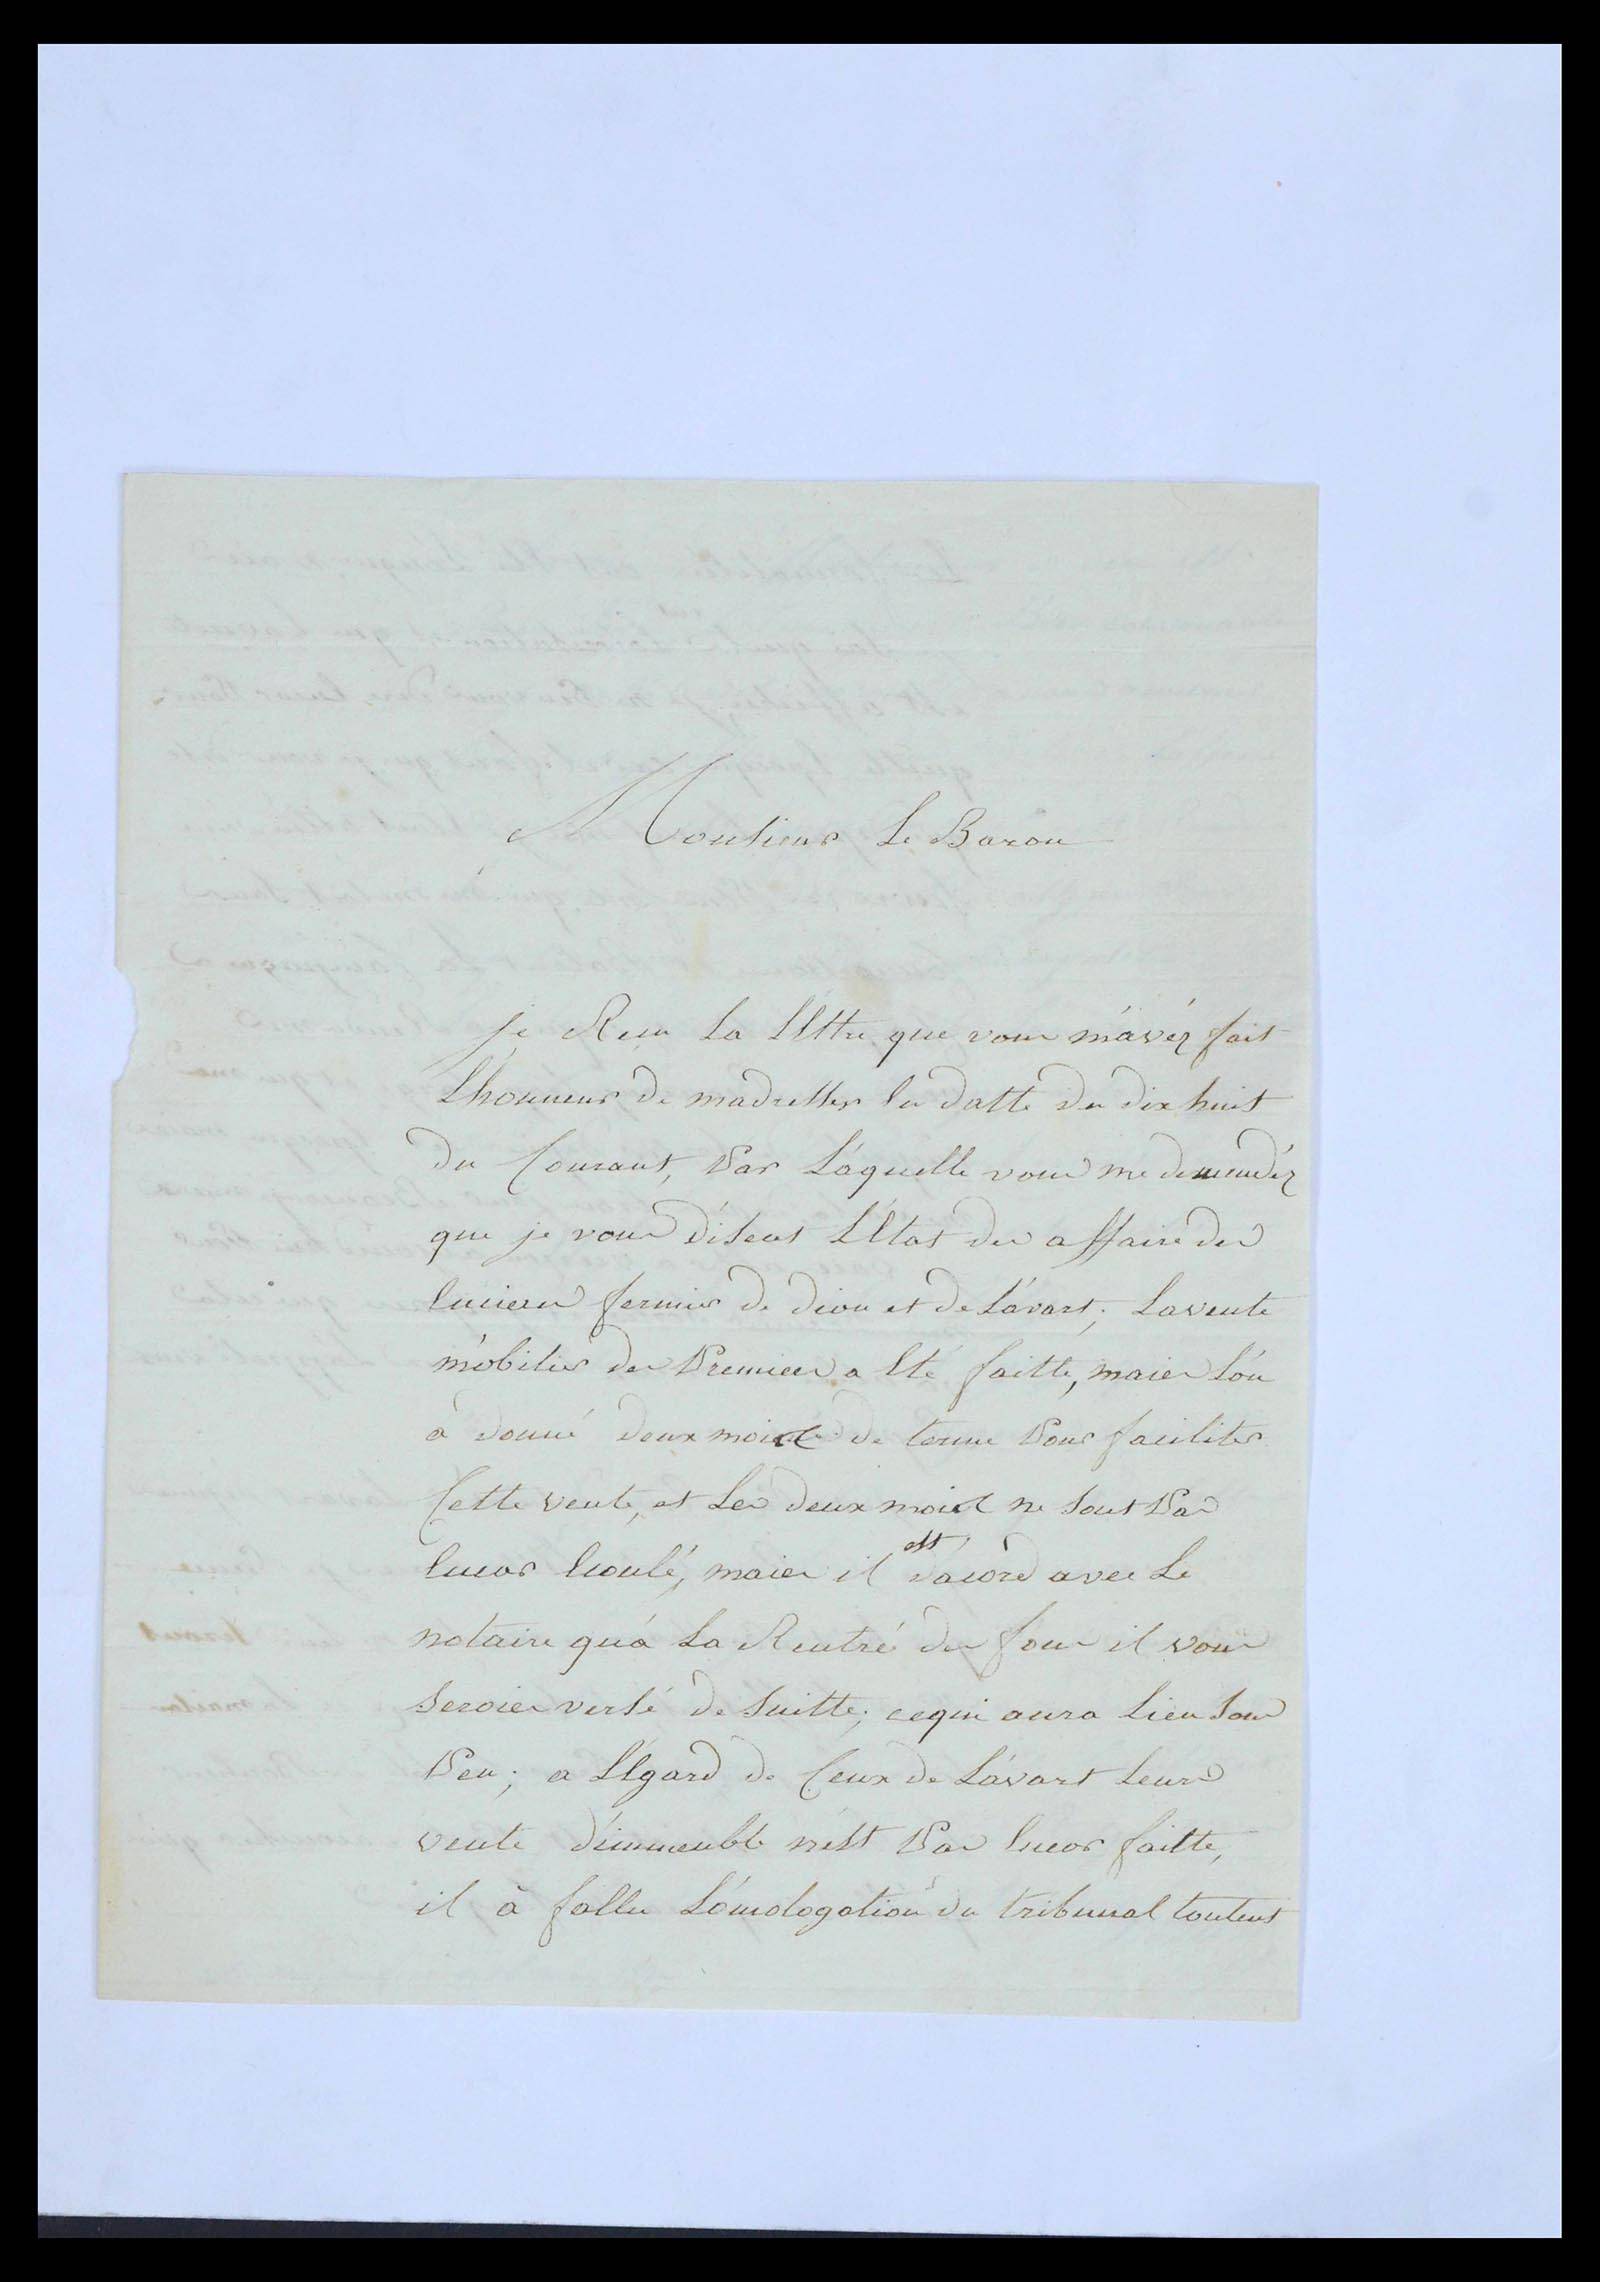 Monsieur Le Baron
je Recu La Lettre que vous m'avéz fait
L'honneur de madresser En datte du dix huit
du Courant, Par Láquelle vous me demendéz
que je vous disent L'Etat des affaire des
Enciens fermier de dion et de Lávart; La vente
móbilier des Premiers a Eté faitte, mais L'on
à donné deux mois de terme Pour faciliter
Cette vente, et Les deux mois ne sont Pas
Encor Ecoulé, mais il est dacord avec Le
notaire qu'a La Rentré des fons il vous
serois versé de suitte; cequi aura Lieu sous
Peu; a L'Egard de Ceux de Lávart Leurs
vente d'immeuble n'est Pas Encor faitte,
il à fallu L'ómologation du tribunal toutens